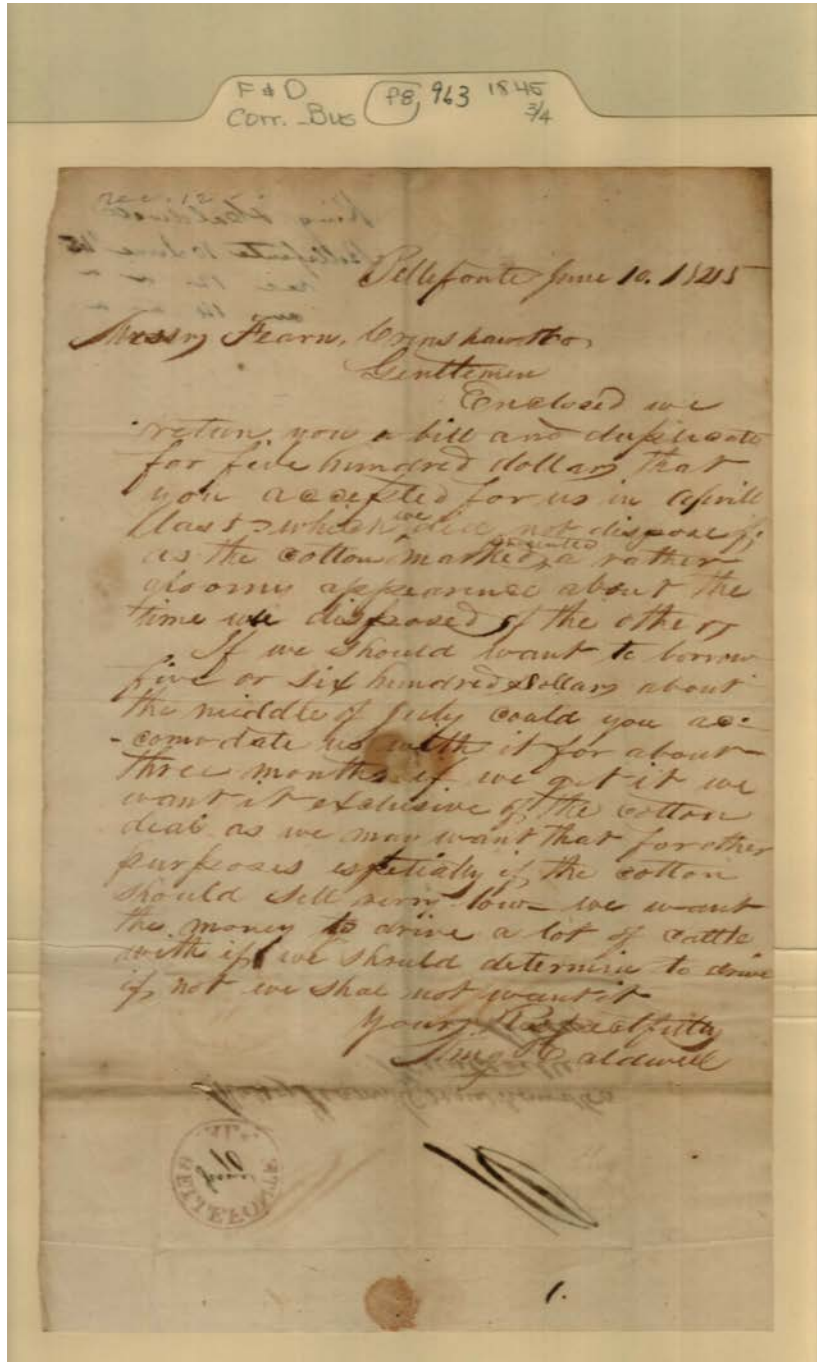 F & D
Corr. - Bus
F8, 963 1845
3/4
Bellefonte June 10. 1845
Messrs Fearn, Crenshaw & Co,
Gentlemen
Enclosed we
return you a bill and duplicate
for five hundred dollars that
you accepted for us in Aprill
last which we did not dispose of,
as the cotton market presented a rather
gloomy appearence about the
time we disposed of the others
If we should want to borrow
five or six hundred dollars about
the middle of July could you ac=
-comodate us with it for about
three months if we get it we
want it exclusive of the cotton
deal as we may want that for other
purposes espetially if the cotton
should sell very low - we want
the money to drive a lot of cattle
with if we should determine to drive
if not we shal not want it
Yours Respectfully
King & Caldwell
Messrs Fearn Crenshaw & Co
BELLEFONTE
1.
King & Caldwell
Bellefonte 10 June '45
rec 12 " "
ans 14 " "